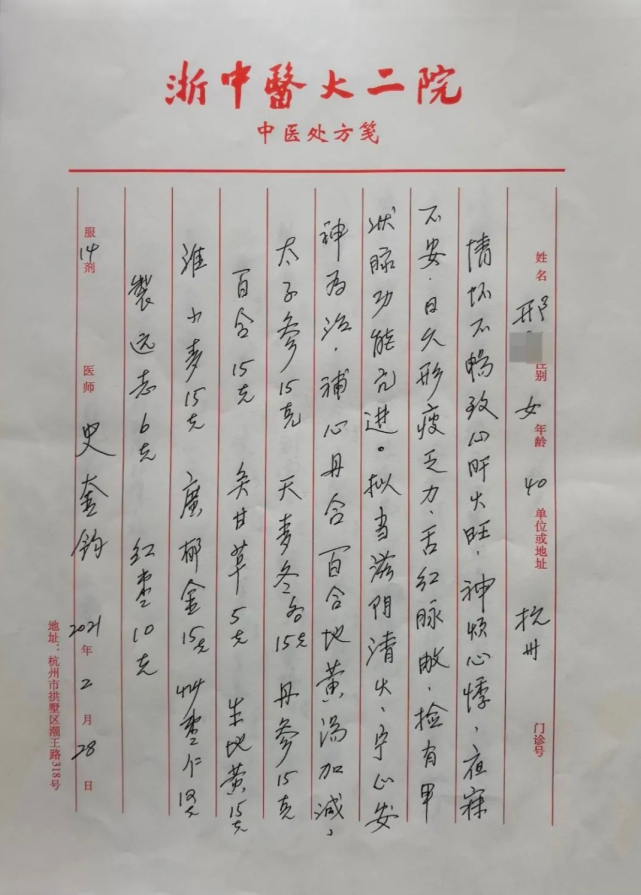 浙中醫大二院
中医处方笺
姓名 邢 性别 女 年龄 40 单位或地址 杭州 门诊号
情怀不畅致心肝火旺，神烦心悸，夜寐
不安，日久形瘦乏力，舌红脉数，检有甲
状腺功能亢进。拟当滋阴清火、宁心安
神为治，補心丹合百合地黄汤加减，
太子参15克 天麦冬各15克 丹参15克
百合15克 炙甘草5克 生地黄15克
淮小麦15克 廣郁金15克 炒枣仁18克
製远志6克 红枣10克
服14剂 医师 史奎钧 2021年2月28日
地址：杭州市拱墅区潮王路318号